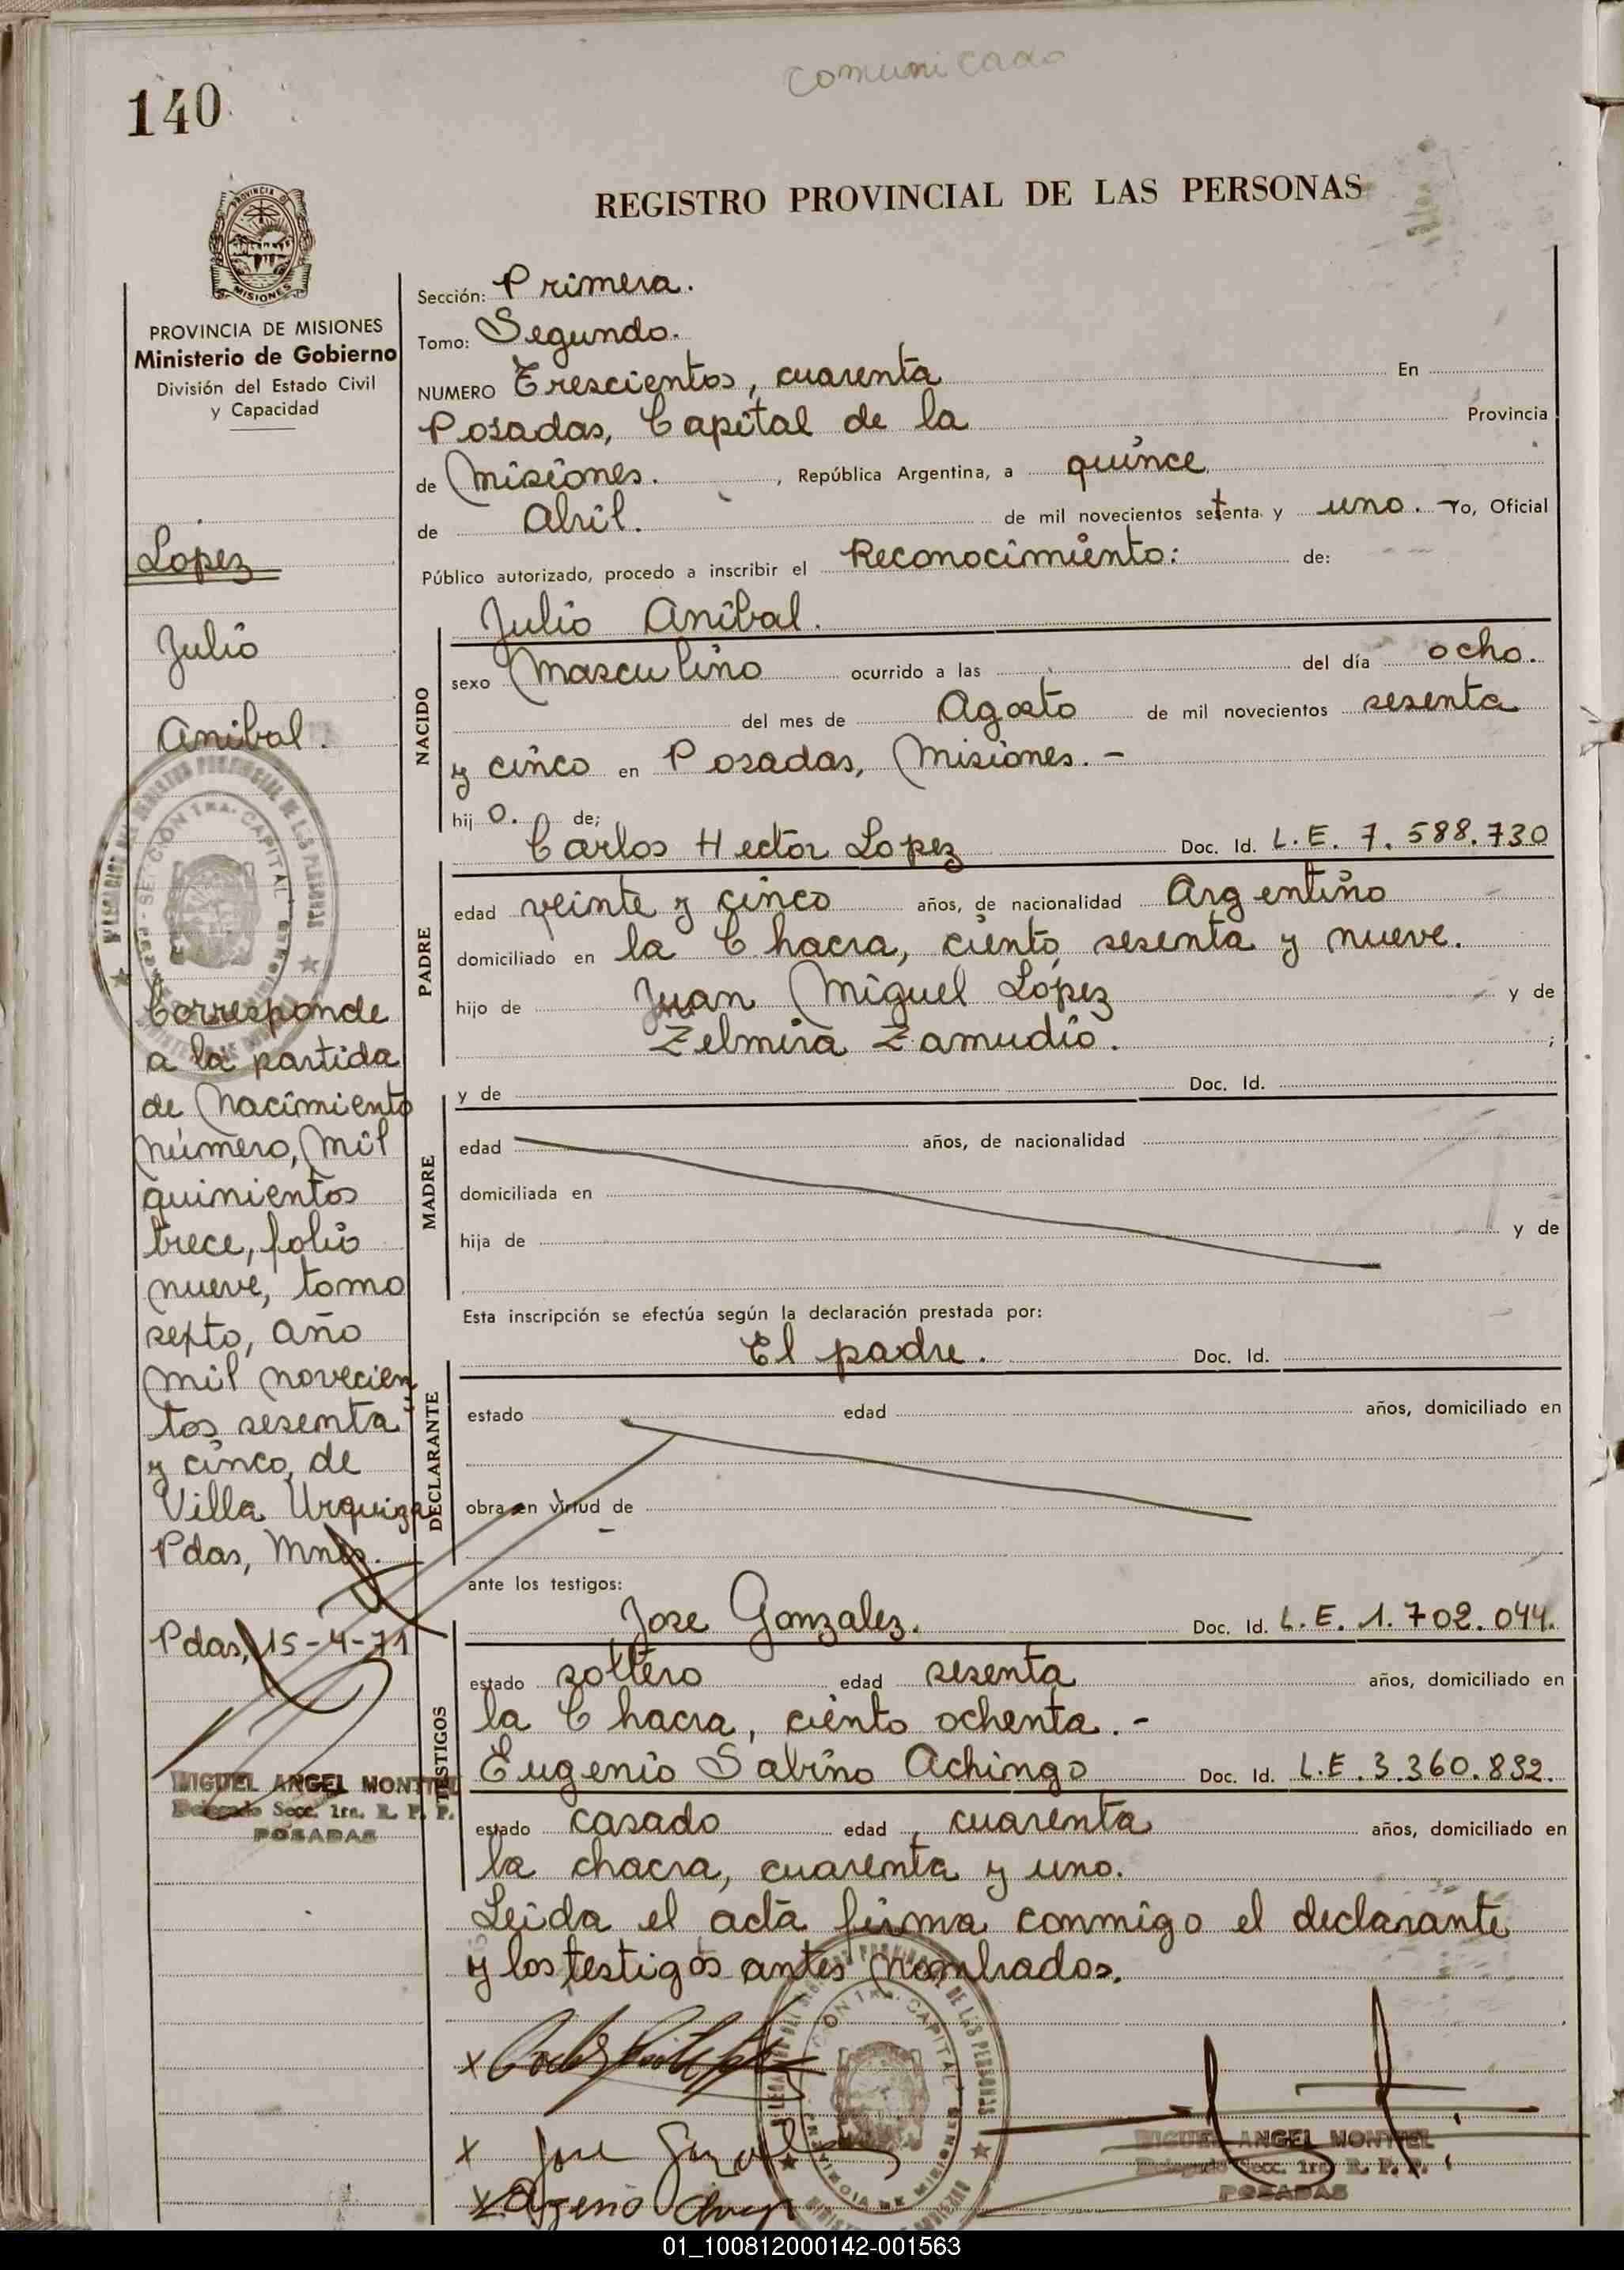 comunicado
140
PROVINCIA
MISIONES
REGISTRO PROVINCIAL DE LAS PERSONAS
PROVINCIA DE MISIONES
Ministerio de Gobierno
División del Estado Civil
y Capacidad
Lopez
Julio
Anibal.
Corresponde
a la partida
de Nacimiento
número, mil
quinientos
trece, folio
nueve, tomo
sexto, año
mil novecien
tos sesenta
y cinco, de
Villa Urquiza
Pdas, Mnes.
Pdas, 15-4-71
MIGUEL ANGEL MONTIEL
Delegado Secc. 1ra. R. P. P.
POSADAS
Sección: Primera.
Tomo: Segundo.
NUMERO Trescientos, cuarenta En
Posadas, Capital de la Provincia
de Misiones. , República Argentina, a quince
de Abril. de mil novecientos setenta y uno. Yo, Oficial
Público autorizado, procedo a inscribir el Reconocimiento: de:
Julio Anibal.
NACIDO
sexo Masculino ocurrido a las del día ocho.
del mes de Agosto de mil novecientos sesenta
y cinco en Posadas, Misiones. -
hij o. de;
Carlos Hector Lopez Doc. Id. L.E. 7.588.730
PADRE
edad veinte y cinco años, de nacionalidad Argentino
domiciliado en la Chacra, ciento sesenta y nueve.
hijo de Juan Miguel López y de
Zelmira Zamudio. ;
y de Doc. Id.
MADRE
edad años, de nacionalidad
domiciliada en
hija de y de
Esta inscripción se efectúa según la declaración prestada por:
El padre. Doc. Id.
DECLARANTE
estado edad años, domiciliado en
obra en virtud de
ante los testigos:
Jose Gonzalez. Doc. Id. L.E. 1.702.044.
TESTIGOS
estado soltero edad sesenta años, domiciliado en
la Chacra, ciento ochenta. -
Eugenio Sabino Achingo Doc. Id. L.E. 3.360.832.
estado casado edad cuarenta años, domiciliado en
la chacra, cuarenta y uno.
Leida el acta firma conmigo el declarante
y los testigos antes nombrados.
x
x Jose
x
MIGUEL ANGEL MONTIEL
Delegado Secc. 1ra. R. P. P.
POSADAS
01_100812000142-001563